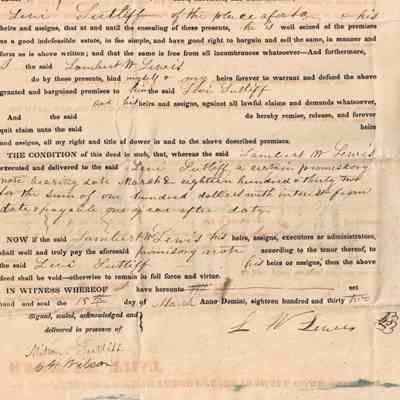 Levi Sutliff of the place aforesd & his
heirs and assigns, that at and until the ensealing of these presents, he is well seized of the premises
as a good indefeasible estate, in fee simple, and have good right to bargain and sell the same, in manner and
form as is above written; and that the same is free from all incumbrances whatsoever—And furthermore,
I the said Lambert W Lewis
do by these presents, bind myself & my heirs forever to warrant and defend the above
granted and bargained premises to him the said Levi Sutliff
and his heirs and assigns, against all lawful claims and demands whatsoever,
And the said do hereby remise, release, and forever
quit claim unto the said heirs
and assigns, all my right and title of dower in and to the above described premises.
THE CONDITION of this deed is such, that, whereas the said Lambert W Lewis
executed and delivered to the said Levi Sutliff a certain promissory
note bearing date March eighteen hundred & thirty two
for the sum of one hundred dollars with interest from
date & payable one year after date
NOW if the said Lambert W Lewis his heirs, assigns, executors or administrators,
shall well and truly pay the aforesaid promissory note according to the tenor thereof, to
the said Levi Sutliff his heirs or assigns, then the above
deed shall be void—otherwise to remain in full force and virtue.
IN WITNESS WHEREOF I have hereunto set
hand and seal the 15th day of March Anno Domini, eighteen hundred and thirty two
Signed, sealed, acknowledged and
delivered in presence of
L W Lewis
Sutliff
Wilson